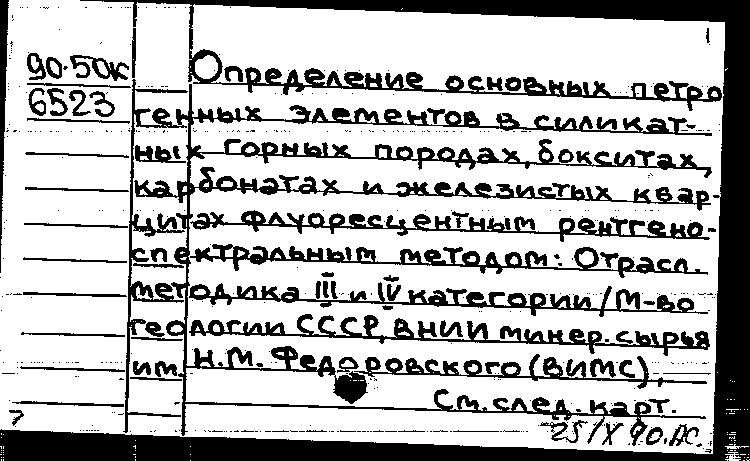 90-50к
6523
Определение основных петро
генных элементов в силикат-
ных горных породах, бокситах,
карбонатах и железистых квар-
цитах флуоресцентным рентгено-
спектральным методом: Отрасл.
методика III и IV категории/М-во
геологии СССР, ВНИИ минер. сырья
им. Н.М. Федоровского (ВИМС),
См. след. карт.
25/X 90.